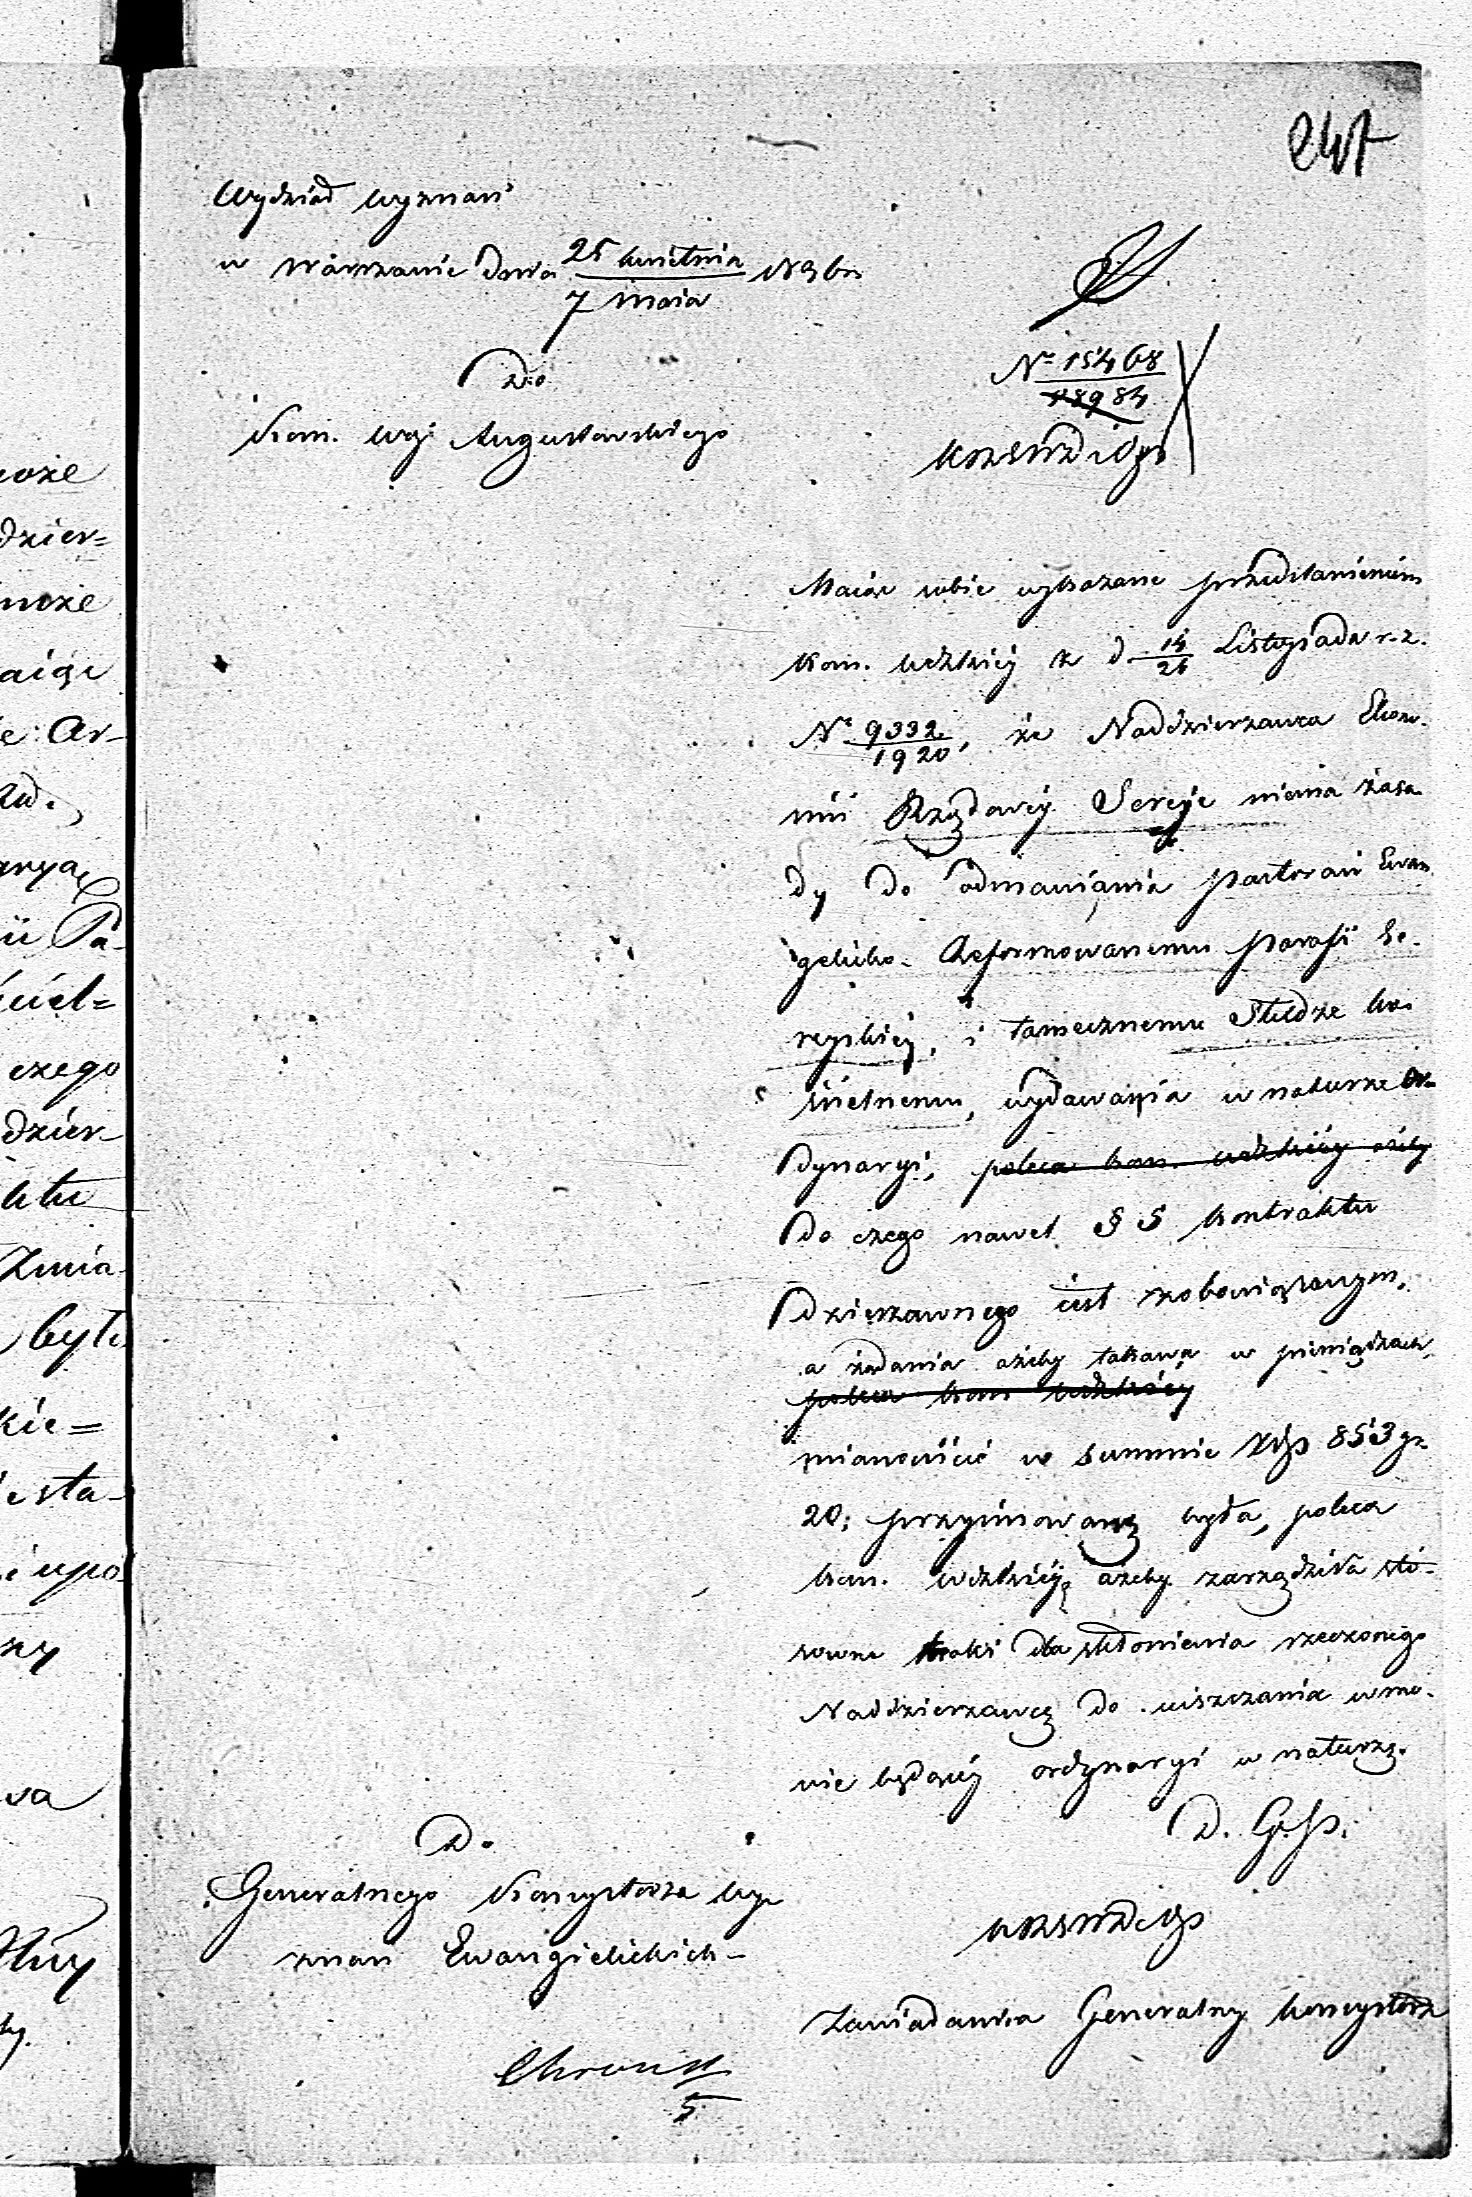 247
Wydział Wyznań
w Warszawie dnia 25 kwietnia / 7 maia 1836 r.
Do
Kom. Woj. Augustowskiego
Nr 15468
18984
KRSWD i OP
Maiąc sobie wykazane przedstawieniem
Kom. Wdzkiéy z d. 14/26 Listopada r. z.
Nr 9332/1920, że Naddzierzawca Ekono-
mii Rządowéy Sereje niema zasa-
dy do odmawiania Pastorowi Ewan-
gelicko-Reformowanemu Parafii Se-
reyskiéy, i tamecznemu Słudze ko-
ścielnemu, wydawania w naturze Or-
dynaryi, poleca Kom. Wdzkiéy ażeby
do czego nawet § 5 kontraktu
dzierżawnego iest zobowiązanym,
a żądania ażeby takowa w pieniądzach,
poleca Kom. Wdzkiéy
mianowicie w summie Złp 853 gr.
20; przyimowaną była, poleca
Kom. Wdzkiéy, ażeby zarządziła sto-
sowne kroki dla skłonienia rzeczonego
Naddzierzawcę do uiszczania w mo-
wie będącéy ordynaryi w naturze.
D. G. P.
Do
Generalnego Konsystorza Wy-
znań Ewangielickich
KRSWD i OP
Zawiadamia Generalny Konsystorz
5
oże
dzier=
może
aiąc
Ar-
anya
ii Pa-
ciel=
czego
dzier-
ktu
Zmia-
było
kie=
sta-
upo-